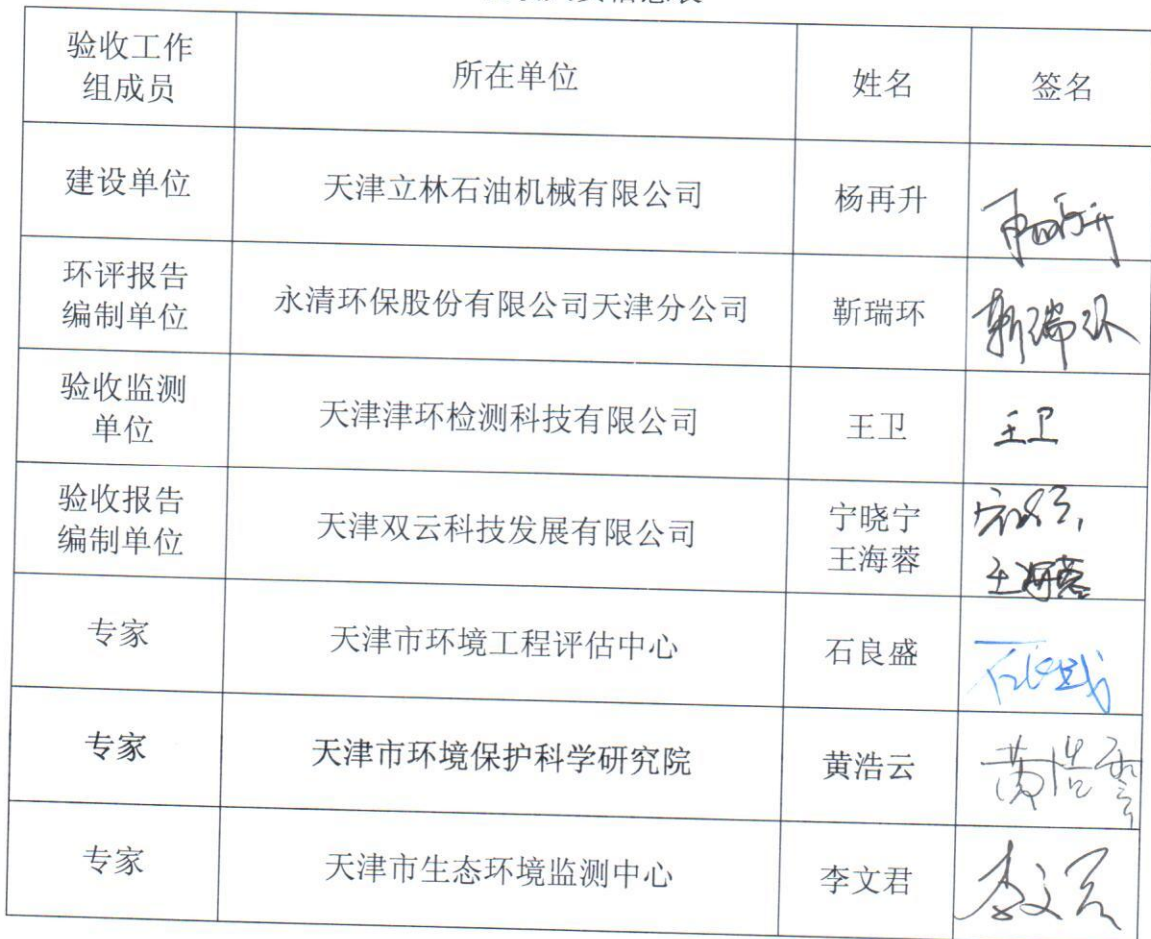 验收工作
组成员
所在单位
姓名
签名
建设单位
天津立林石油机械有限公司
杨再升
环评报告
编制单位
永清环保股份有限公司天津分公司
靳瑞环
靳瑞环
验收监测
单位
天津津环检测科技有限公司
王卫
王卫
验收报告
编制单位
天津双云科技发展有限公司
宁晓宁
王海蓉
王海蓉
专家
天津市环境工程评估中心
石良盛
专家
天津市环境保护科学研究院
黄浩云
黄浩云
专家
天津市生态环境监测中心
李文君
李文君